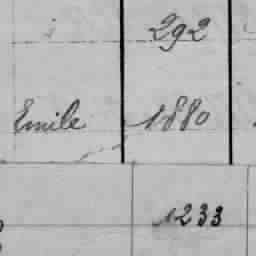 292
Emile 1880
1233